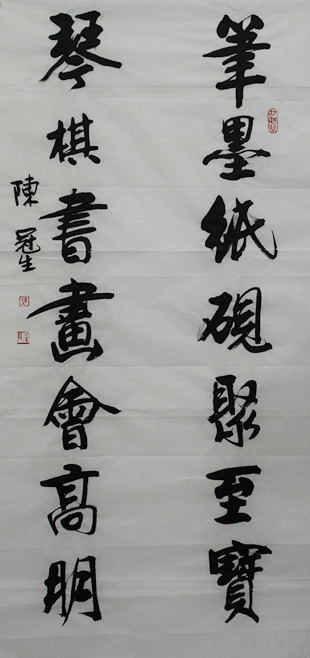 筆墨紙硯聚至寶
琴棋書畫會高明
陳冠生